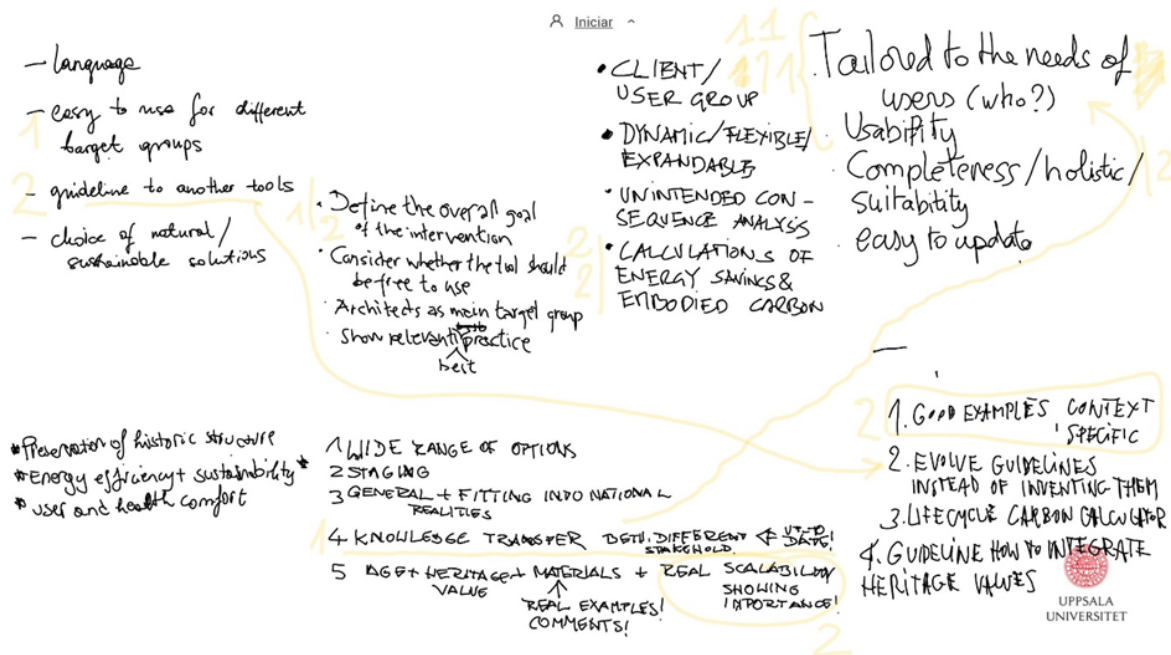 Iniciar
— language
— easy to use for different
target groups
1
2
– guideline to another tools
– choice of natural/
sustainable solutions
1/2
· Define the overall goal
of the intervention
· Consider whether the tool should
be free to use
· Architects as main target group
· Show relevant practice
best
11
11
• CLIENT/
USER GROUP
• DYNAMIC/FLEXIBLE/
EXPANDABLE
• UNINTENDED CON-
SEQUENCE ANALYSIS
2
2
• CALCULATIONS OF
ENERGY SAVINGS &
EMBODIED CARBON
· Tailored to the needs of
users (who?)
· Usability
· Completeness/holistic/
suitability
· easy to update
12
* Preservation of historic structure
* Energy efficiency + sustainibility *
* user and health comfort
1 WIDE RANGE OF OPTIONS
2 STAGING
3 GENERAL + FITTING INTO NATIONAL
REALITIES
1
4 KNOWLEDGE TRANSFER BETW. DIFFERENT ← UP-TO
STAKEHOLD. DATE!
5 AGE + HERITAGE + MATERIALS + REAL SCALABILITY
VALUE SHOWING
REAL EXAMPLES! IMPORTANCE!
COMMENTS!
2
2
1. GOOD EXAMPLES, CONTEXT
SPECIFIC
2. EVOLVE GUIDELINES
INSTEAD OF INVENTING THEM
3. LIFECYCLE CARBON CALCULATOR
4. GUIDELINE HOW TO INTEGRATE
HERITAGE VALUES
UPPSALA
UNIVERSITET